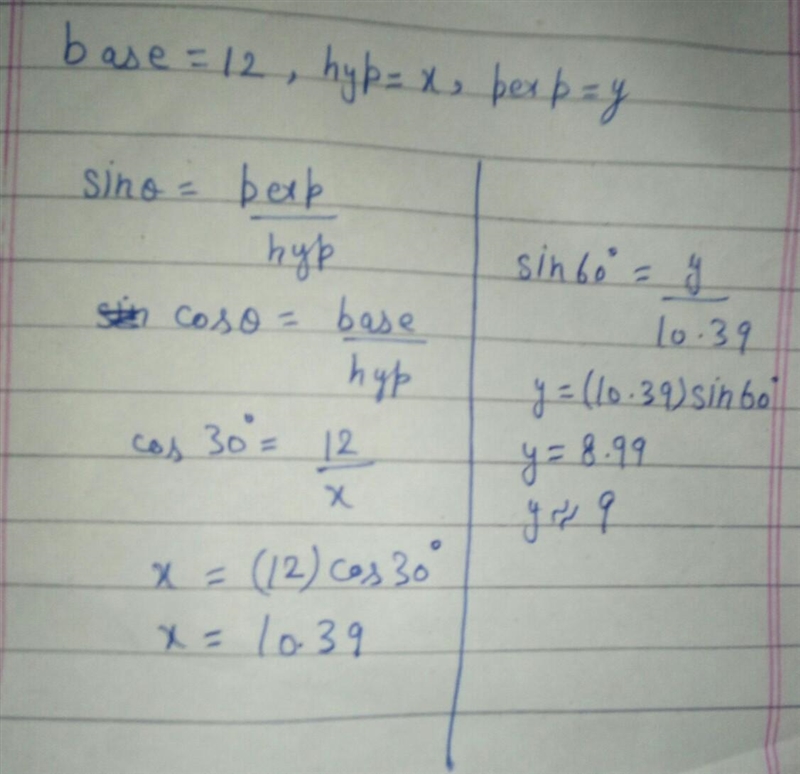 base = 12, hyp = x, perp = y
sinθ = perp
hyp
cosθ = base
hyp
cos 30° = 12
x
x = (12) cos30°
x = 10.39
sin60° = y
10.39
y = (10.39) sin60°
y = 8.99
y ≈ 9